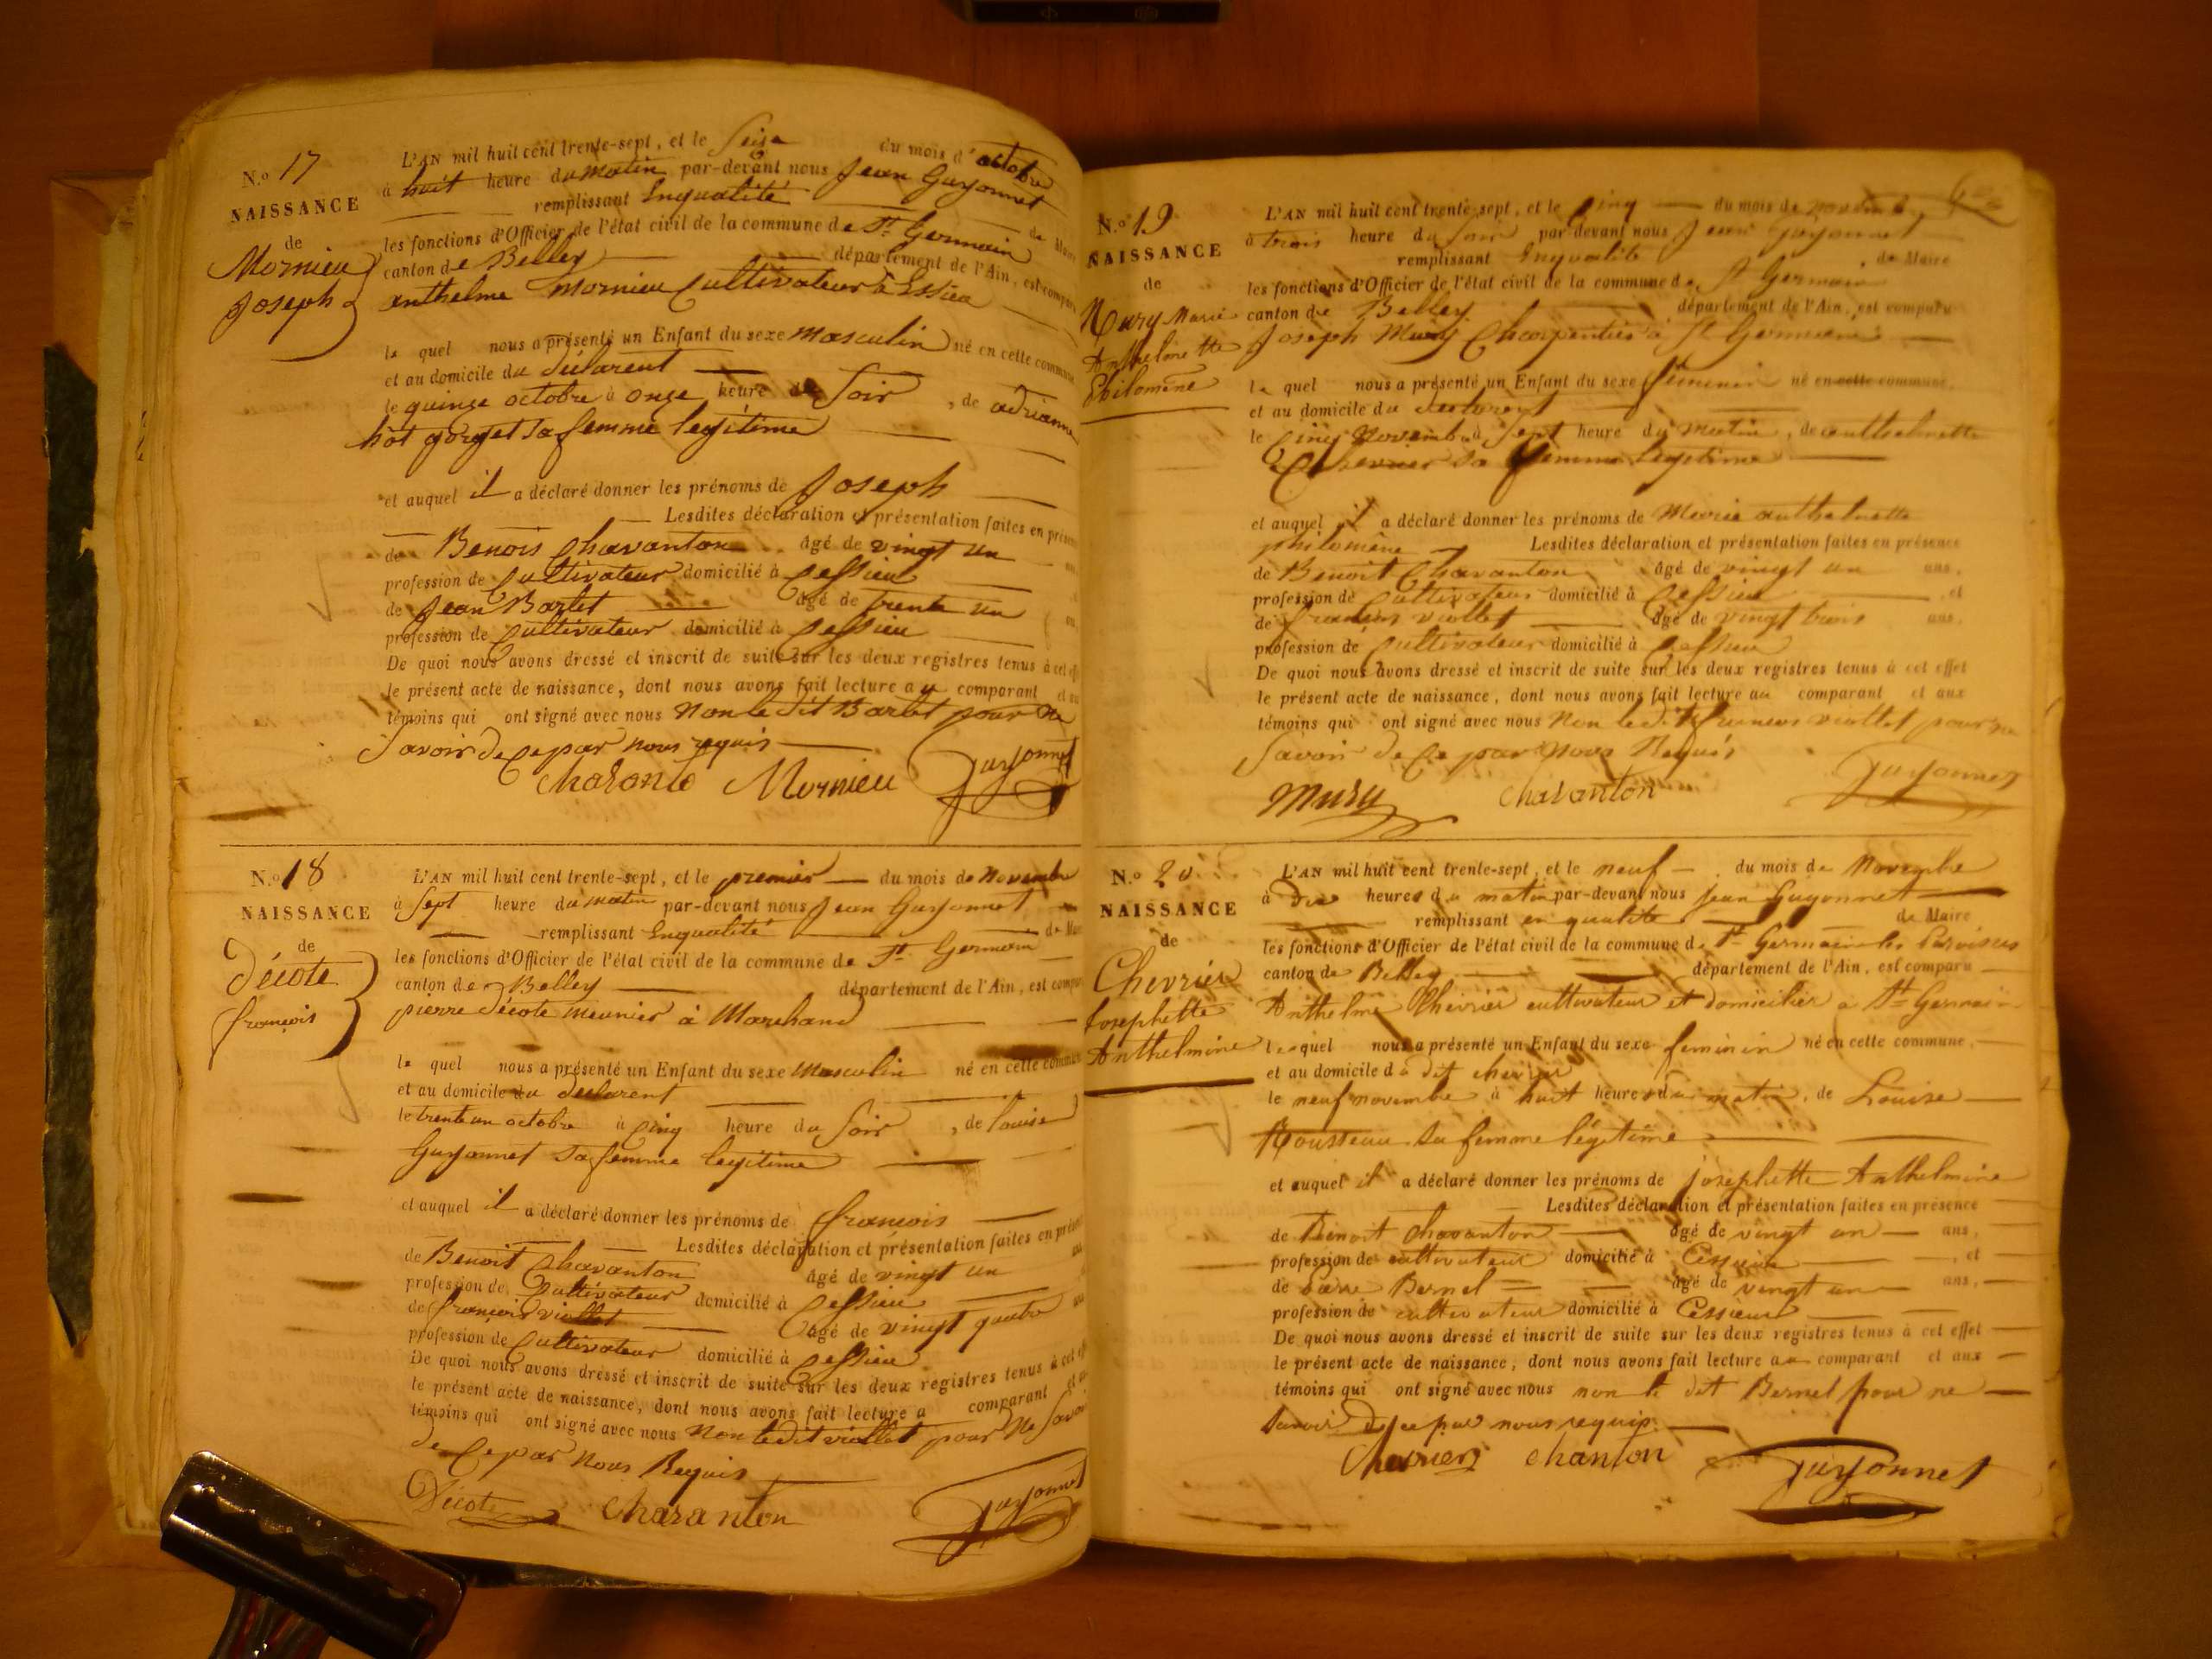 N.o 17
NAISSANCE
de
Mornieu
Joseph
L'AN mil huit cent trente-sept, et le Seize du mois d'octobre
à huit heure du matin par-devant nous Jean Guyonnet
remplissant Enqualité de Maire
les fonctions d'Officier de l'état civil de la commune de St Germain
canton de Belley département de l'Ain, est comparu
anthelme Mornieu Cultivateur à Essieu
le quel nous a présenté un Enfant du sexe masculin né en cette commune
et au domicile du déclarent
le quinze octobre à onze heure du Soir, de adrianne
sa femme legitime
et auquel il a déclaré donner les prénoms de Joseph
Lesdites déclaration et présentation faites en présence
de Benois Chavanton âgé de vingt un
profession de Cultivateur domicilié à Cessieu
de Jean Barlet âgé de trente un
profession de Cultivateur domicilié à Cessieu
De quoi nous avons dressé et inscrit de suite sur les deux registres tenus à cet
le présent acte de naissance, dont nous avons fait lecture au comparant
témoins qui ont signé avec nous Non le dit Barlet pour ne
Savoir de Ce par nous requis
Mornieu Guyonnet
N.o 18
NAISSANCE
de
décote
françois
L'AN mil huit cent trente-sept, et le premier du mois de Novembre
à Sept heure du matin par-devant nous Jean Guyonnet
remplissant Enqualité
les fonctions d'Officier de l'état civil de la commune de St Germain
canton de Belley département de l'Ain, est
pierre décote meunier à Marchand
le quel nous a présenté un Enfant du sexe Masculin né en cette
et au domicile du declarent
le trente un octobre à Cinq heure du Soir, de louise
Guyonnet Sa femme legitime
et auquel il a déclaré donner les prénoms de françois
Lesdites déclaration et présentation faites en
de Benoit Chavanton âgé de vingt un
profession de Cultivateur domicilié à Cessieu
de françois viollet âgé de vingt quatre
profession de Cultivateur domicilié à Cessieu
De quoi nous avons dressé et inscrit de suite sur les deux registres tenus à cet
le présent acte de naissance, dont nous avons fait lecture a comparant
témoins qui ont signé avec nous Non le dit viollet pour Ne Savoir
de Ce par Nous Requis
Décote Charanton Guyonnet
N.o 19
NAISSANCE
de
Mury Marie
Anthelmette
Philomène
L'AN mil huit cent trente-sept, et le Cinq du mois de novembre
à trois heure du Soir par-devant nous Jean Guyonnet
remplissant Enqualité de Maire
les fonctions d'Officier de l'état civil de la commune de St Germain
canton de Belley département de l'Ain, est comparu
Joseph Mury Charpentier à St Germain
le quel nous a présenté un Enfant du sexe féminin né en cette commune,
et au domicile du declarent
le Cinq Novembre à Sept heure du Matin, de anthelmette
Chevrier sa femme legitime
et auquel il a déclaré donner les prénoms de Marie anthelmette
philomène Lesdites déclaration et présentation faites en présence
de Benoit Chavanton âgé de vingt un ans,
profession de Cultivateur domicilié à Cessieu, et
de françois viollet âgé de vingt trois ans,
profession de Cultivateur domicilié à Cessieu
De quoi nous avons dressé et inscrit de suite sur les deux registres tenus à cet effet
le présent acte de naissance, dont nous avons fait lecture au comparant et aux
témoins qui ont signé avec nous Non le dit françois viollet pour ne
Savoir de Ce par Nous Requis
Mury Charanton Guyonnet
N.o 20
NAISSANCE
de
Chevrier
Josephette
Anthelmine
L'AN mil huit cent trente-sept, et le neuf du mois de Novembre
à dix heures du matin par-devant nous Jean Guyonnet
remplissant en qualité de Maire
les fonctions d'Officier de l'état civil de la commune de St Germain les Paroisses
canton de Belley département de l'Ain, est comparu
Anthelme Chevrier cultivateur et domicilier à St Germain
le quel nous a présenté un Enfant du sexe feminin né en cette commune,
et au domicile du dit chevrier
le neuf novembre à huit heures du matin, de Louise
Rousseau sa femme légitime
et auquel il a déclaré donner les prénoms de Josephette Anthelmine
Lesdites déclaration et présentation faites en présence
de Benoit Chavanton âgé de vingt un ans,
profession de cultivateur domicilié à Cessieu, et
de Pierre Bernel âgé de vingt un ans,
profession de cultivateur domicilié à Cessieux
De quoi nous avons dressé et inscrit de suite sur les deux registres tenus à cet effet
le présent acte de naissance, dont nous avons fait lecture au comparant et aux
témoins qui ont signé avec nous non le dit Bernel pour ne
savoir de ce par nous requis
Chevrier chanton Guyonnet